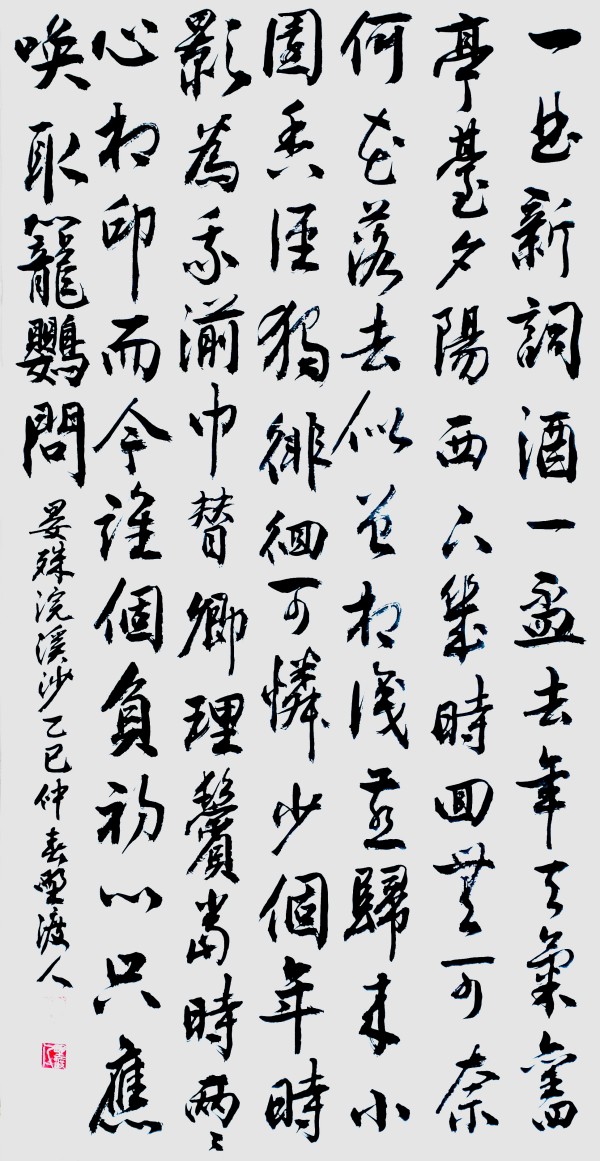 一曲新詞酒一盃去年天氣舊
亭臺夕陽西下幾時回無可奈
何花落去似曾相識燕歸來小
園香徑獨徘徊可憐少個年時
影為我湔巾替卿理鬢當時兩〻
心相印而今誰個負初心只應
喚取籠鸚問
晏殊浣溪沙乙巳仲春野渡人